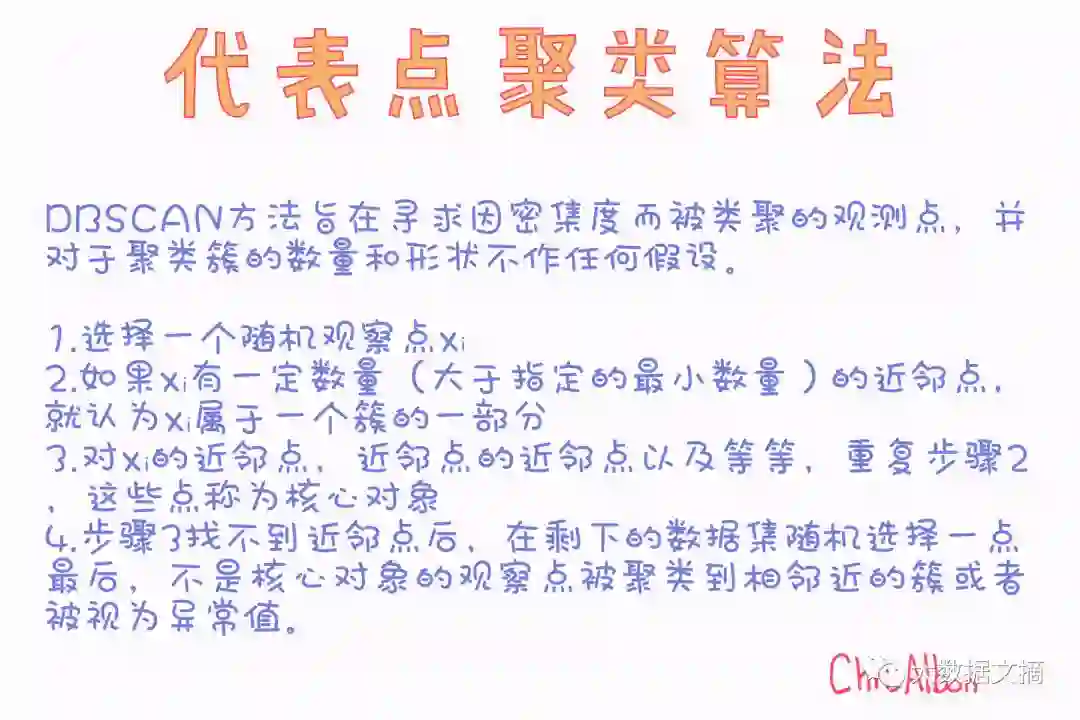 代表点聚类算法
DBSCAN方法旨在寻求因密集度而被类聚的观测点，并
对于聚类簇的数量和形状不作任何假设。
1.选择一个随机观察点xi
2.如果xi有一定数量（大于指定的最小数量）的近邻点，
就认为xi属于一个簇的一部分
3.对xi的近邻点，近邻点的近邻点以及等等，重复步骤2
，这些点称为核心对象
4.步骤3找不到近邻点后，在剩下的数据集随机选择一点
最后，不是核心对象的观察点被聚类到相邻近的簇或者
被视为异常值。
大数据文摘